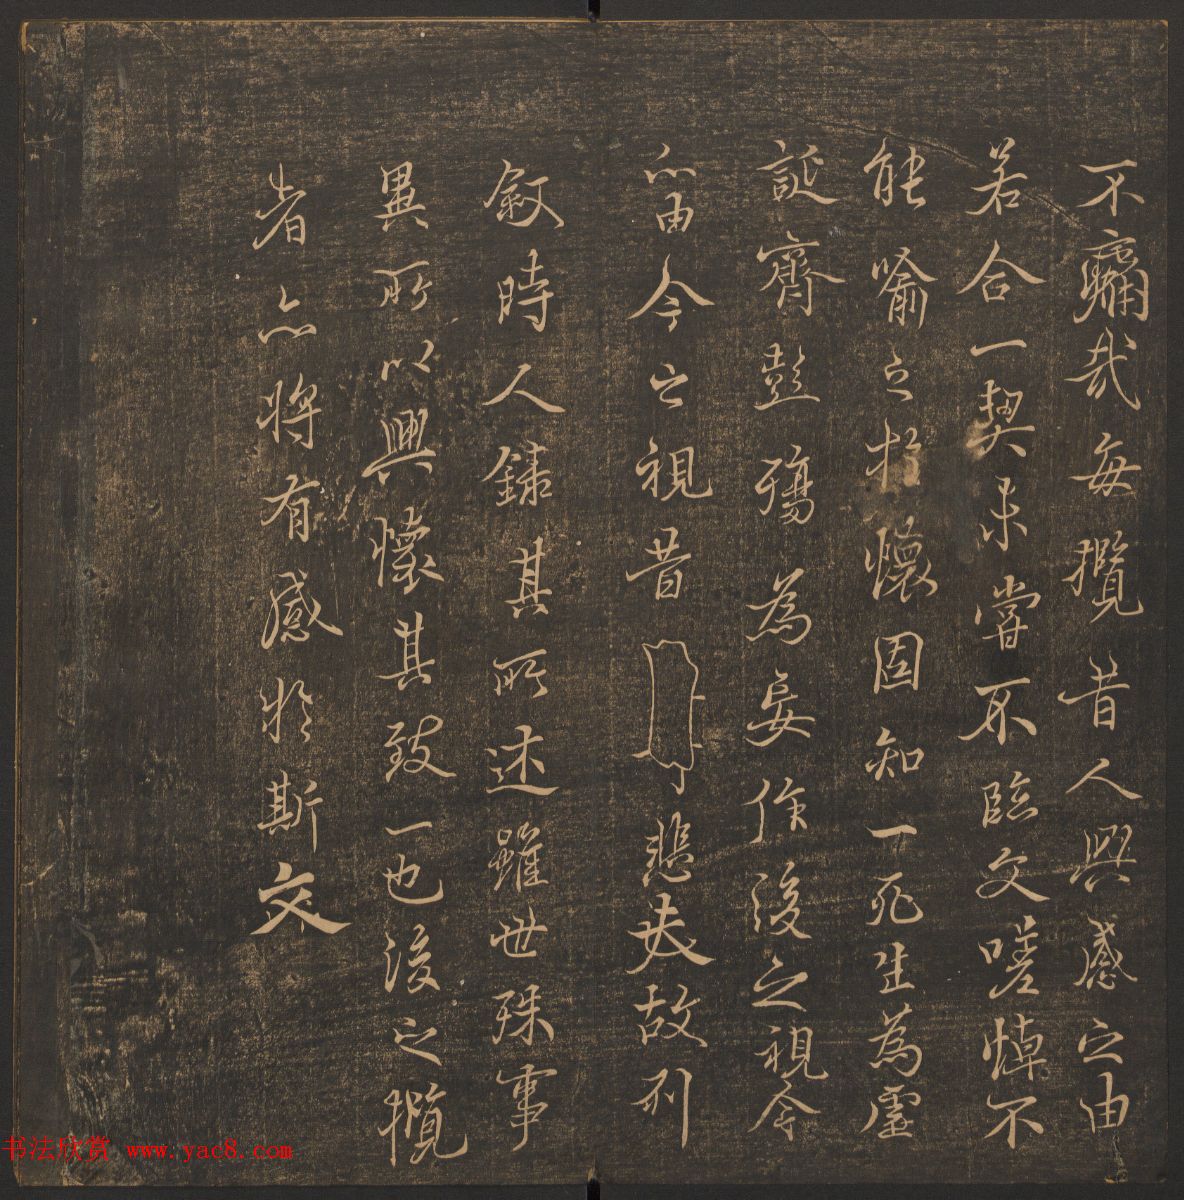 不痛哉每攬昔人興感之由
若合一契未嘗不臨文嗟悼不
能喻之於懷固知一死生為虛
誕齊彭殤為妄作後之視今
亦由今之視昔 悲夫故列
敘時人錄其所述雖世殊事
異所以興懷其致一也後之攬
者亦將有感於斯文
书法欣赏 www.yac8.com